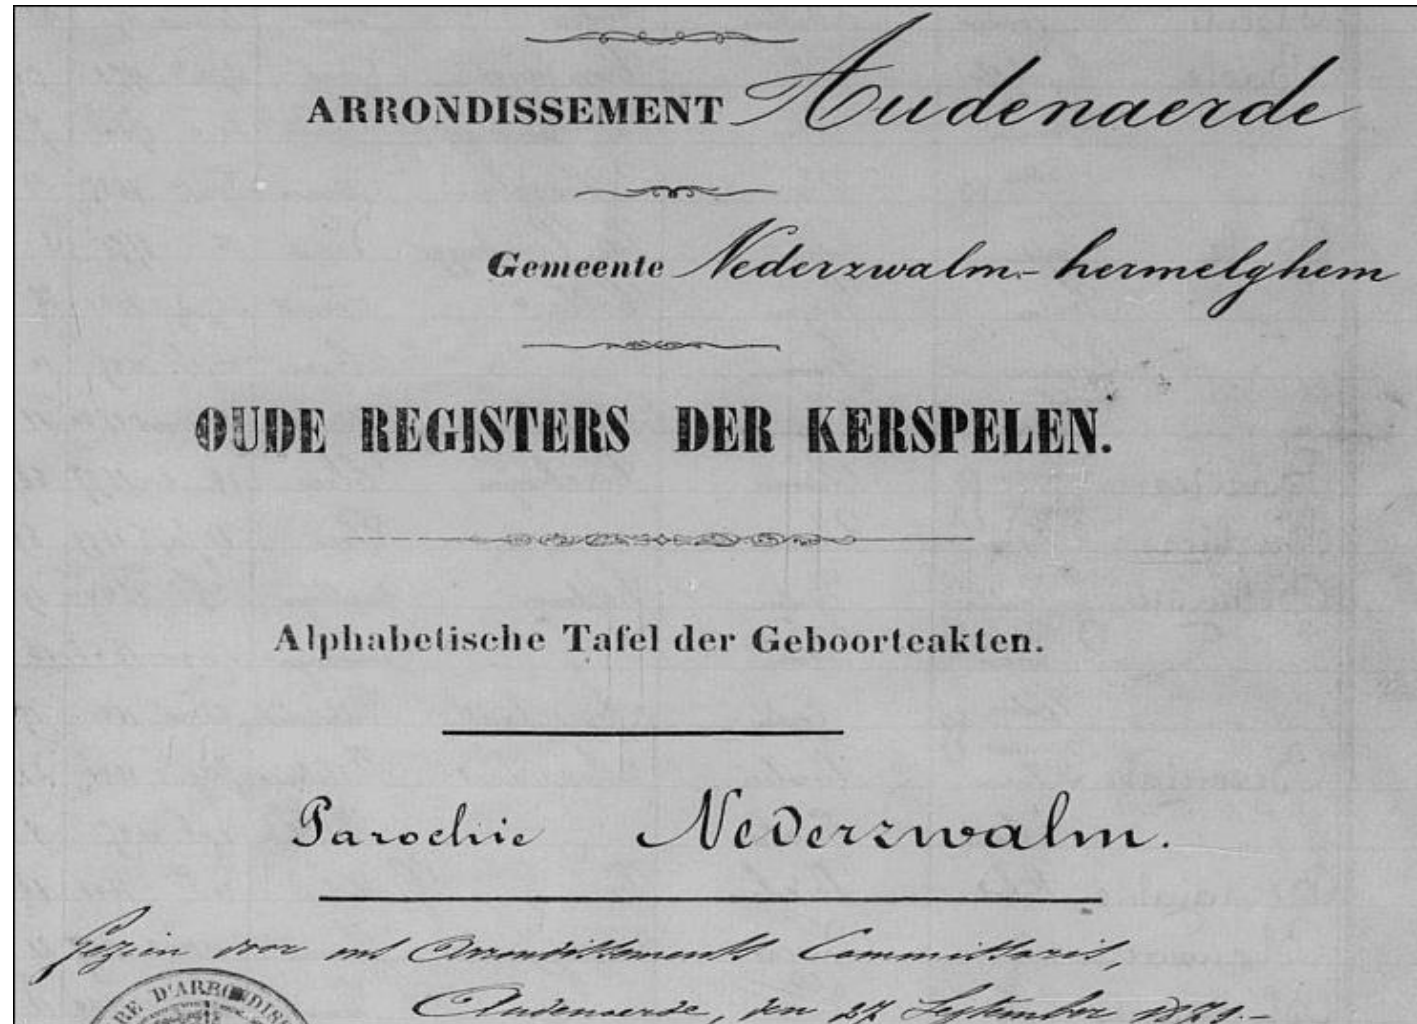 ARRONDISSEMENT Audenaerde
Gemeente Nederzwalm-hermelghem
OUDE REGISTERS DER KERSPELEN.
Alphabetische Tafel der Geboorteakten.
Parochie Nederzwalm.
Gezien door ons Arrondissements Commissaris,
Audenaerde, den 27 September 1879.-
RE D'ARRONDISS